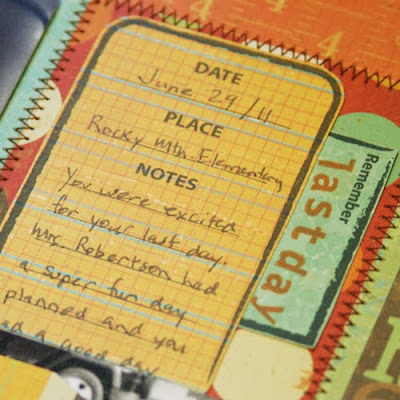 DATE
June 29/11
PLACE
Rocky Mtn. Elementary
NOTES
You were excited
for your last day.
Mrs. Robertson had
a super fun day
planned and you
a good day
Remember
last day